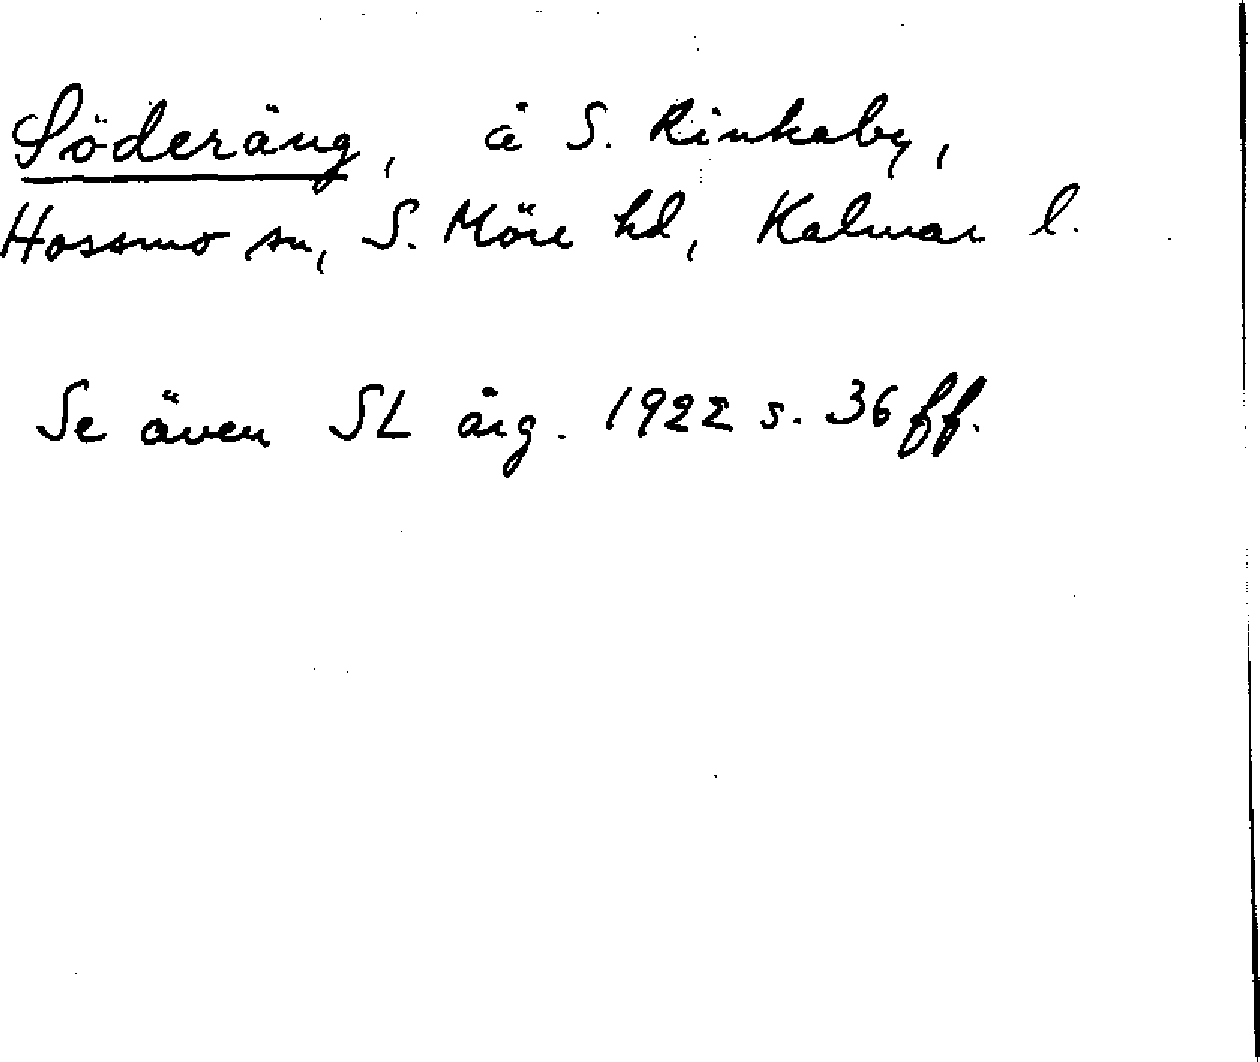 Söderäng, å S. Rinkaby,
Hossmo sn, S. Möre hd, Kalmar l.
Se även SL årg. 1922 s. 36 ff.